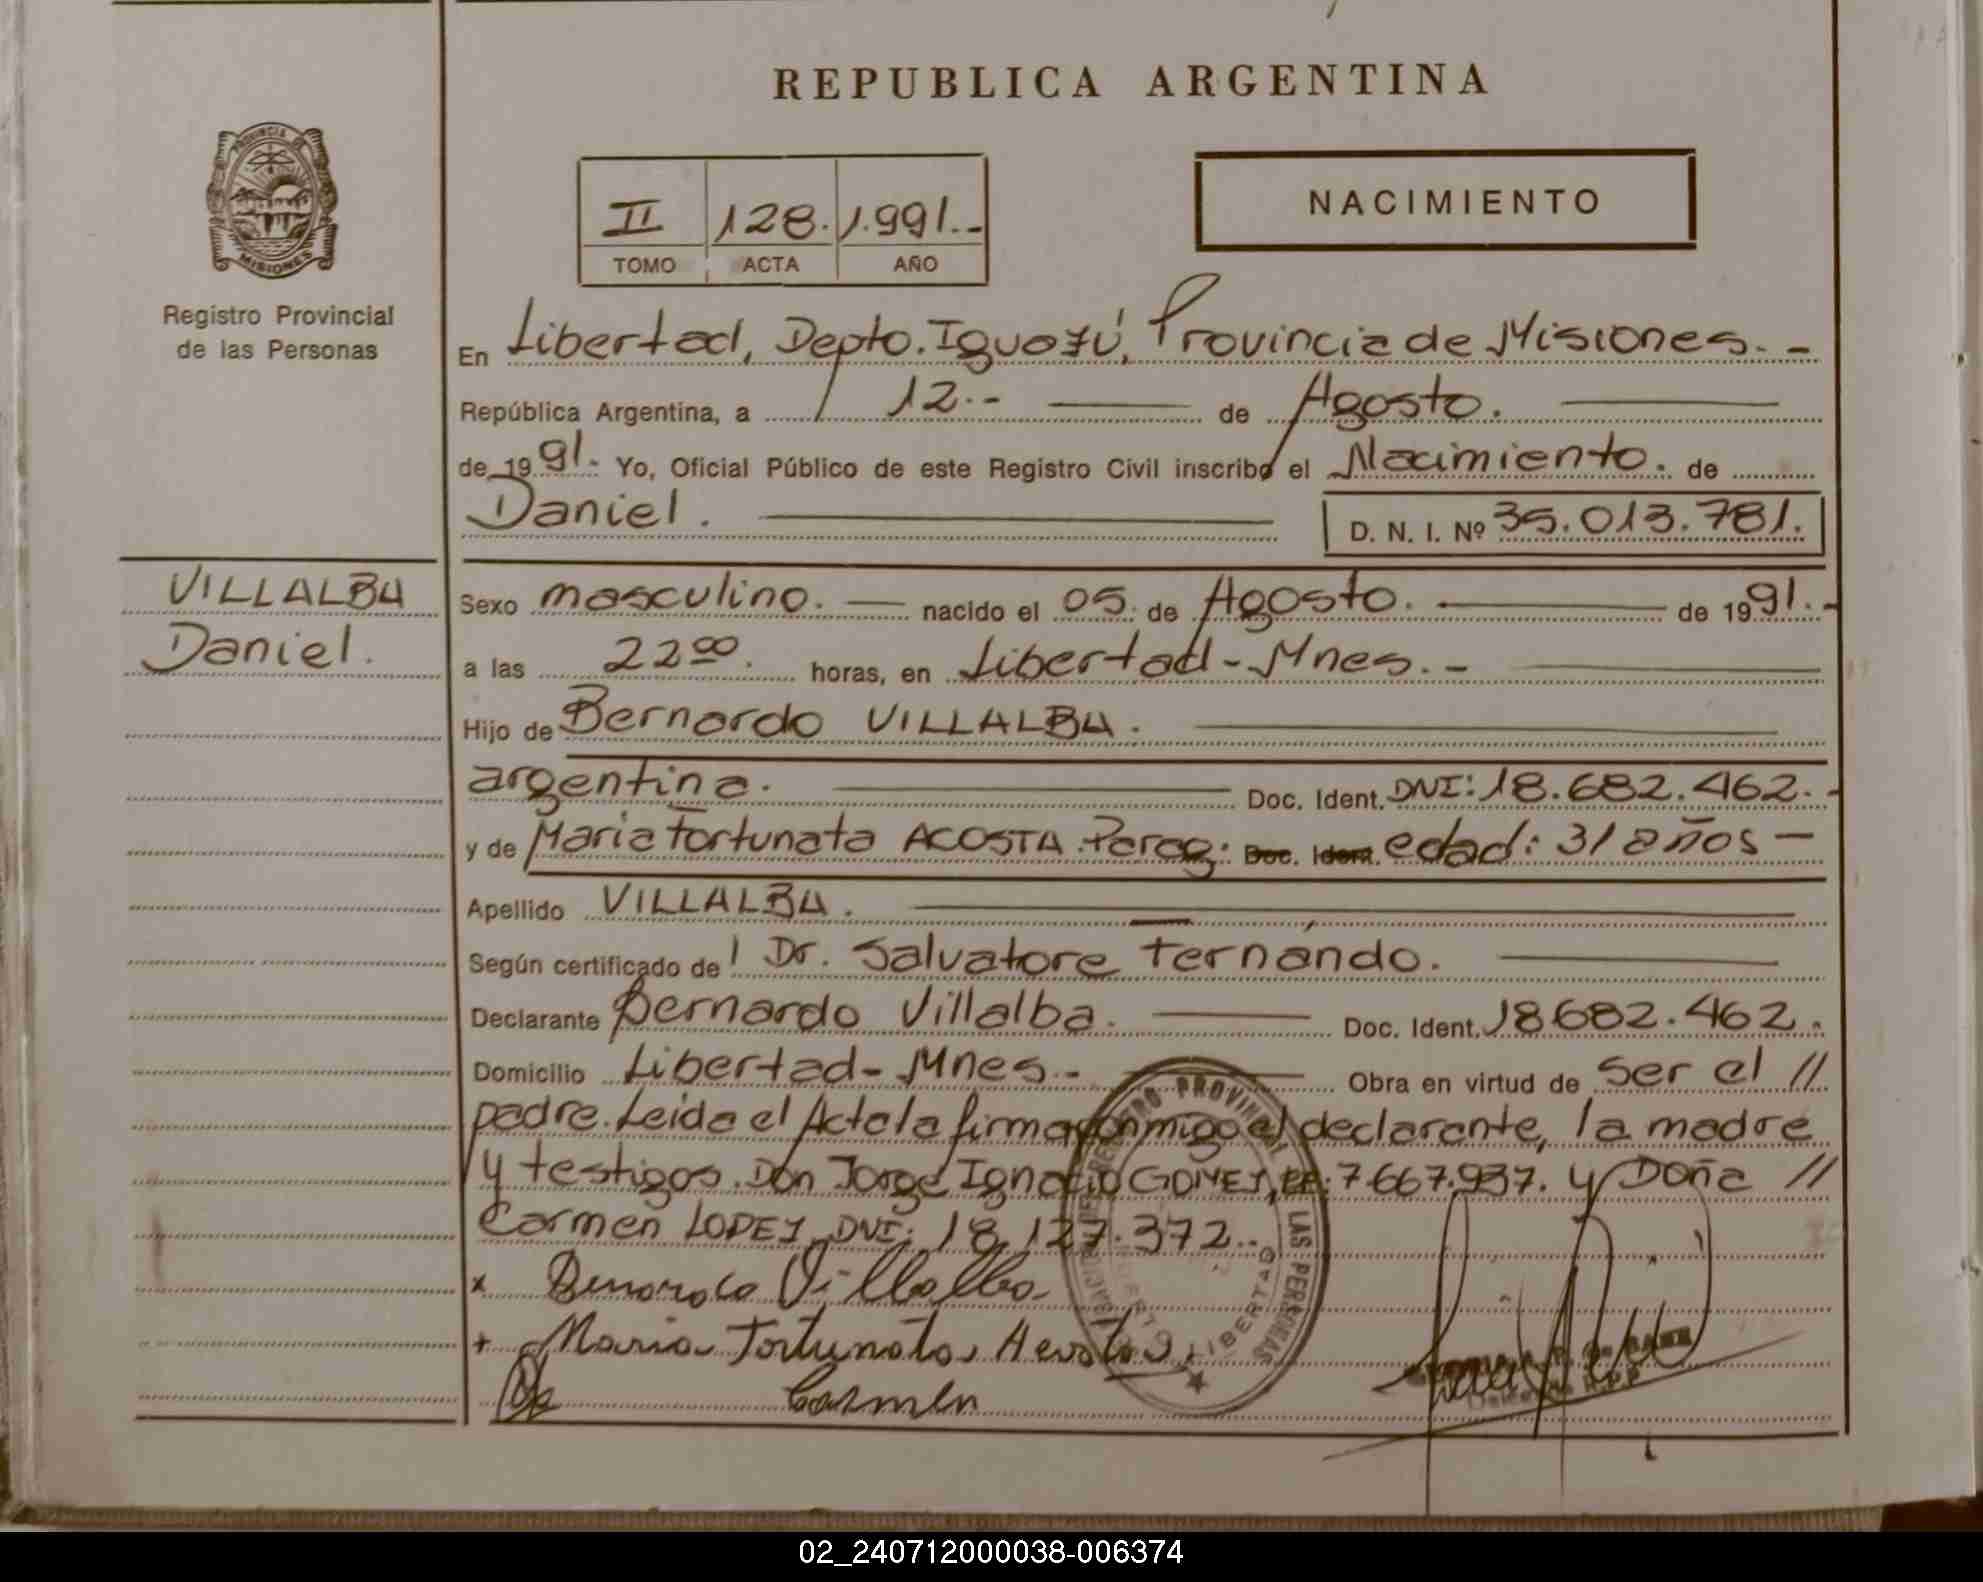 REPUBLICA ARGENTINA
PROVINCIA DE
MISIONES
Registro Provincial
de las Personas
II 128. 1.991.-
TOMO ACTA AÑO
NACIMIENTO
En Libertad, Depto. Iguazú, Provincia de Misiones. -
República Argentina, a 12.- de Agosto.
de 1991.- Yo, Oficial Público de este Registro Civil inscribo el Nacimiento. de
Daniel. D. N. I. Nº 35.013.781.
VILLALBA
Daniel.
Sexo masculino. nacido el 05. de Agosto. de 1991.-
a las 22 00. horas, en Libertad - Mnes. -
Hijo de Bernardo VILLALBA.
argentina. Doc. Ident. DNI: 18.682.462. -
y de Maria Fortunata ACOSTA Parag: Doc. Ident. edad: 31 años -
Apellido VILLALBA.
Según certificado de Dr. Salvatore Fernando.
Declarante Bernardo Villalba. Doc. Ident. 18682.462.
Domicilio Libertad - Mnes. - Obra en virtud de ser el //
padre. Leida el Acta la firma conmigo el declarante, la madre
y testigos. Don Jorge Ignacio GOMEZ, 7.667.937. y Doña //
Carmen LOPEZ DNI: 18.127.372..
x Villalba
+ Maria Fortunata
Carmen
REGISTRO PROVINCIAL DE LAS PERSONAS
LIBERTAD
02_240712000038-006374